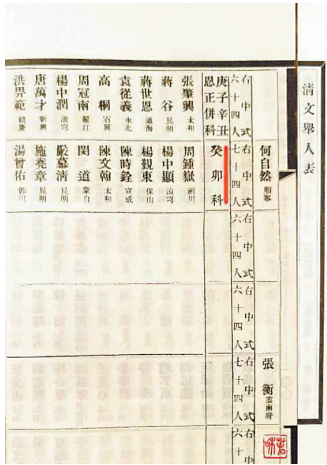 清文舉人表
何自然 順寧
張衡 雲南府
六十四人
右中式七十四人
右中式六十四人
右中式六十四人
右中式七十四人
右中式六十
庚子辛丑恩正併科
癸卯科
張肇興 太和
周鍾嶽 劍川
蔣谷 昆明
楊中顯 浪穹
蔣世恩 通海
楊覲東 保山
袁從義 永北
陳時銓 宣威
高桐 石屏
陳文翰 太和
周冠南 麗江
閔道 蒙自
楊中潤 浪穹
嚴慕清 昆明
唐萬才 新興
施堯章 昆明
洪畀範 鶴慶
湯曾佑 鄧川